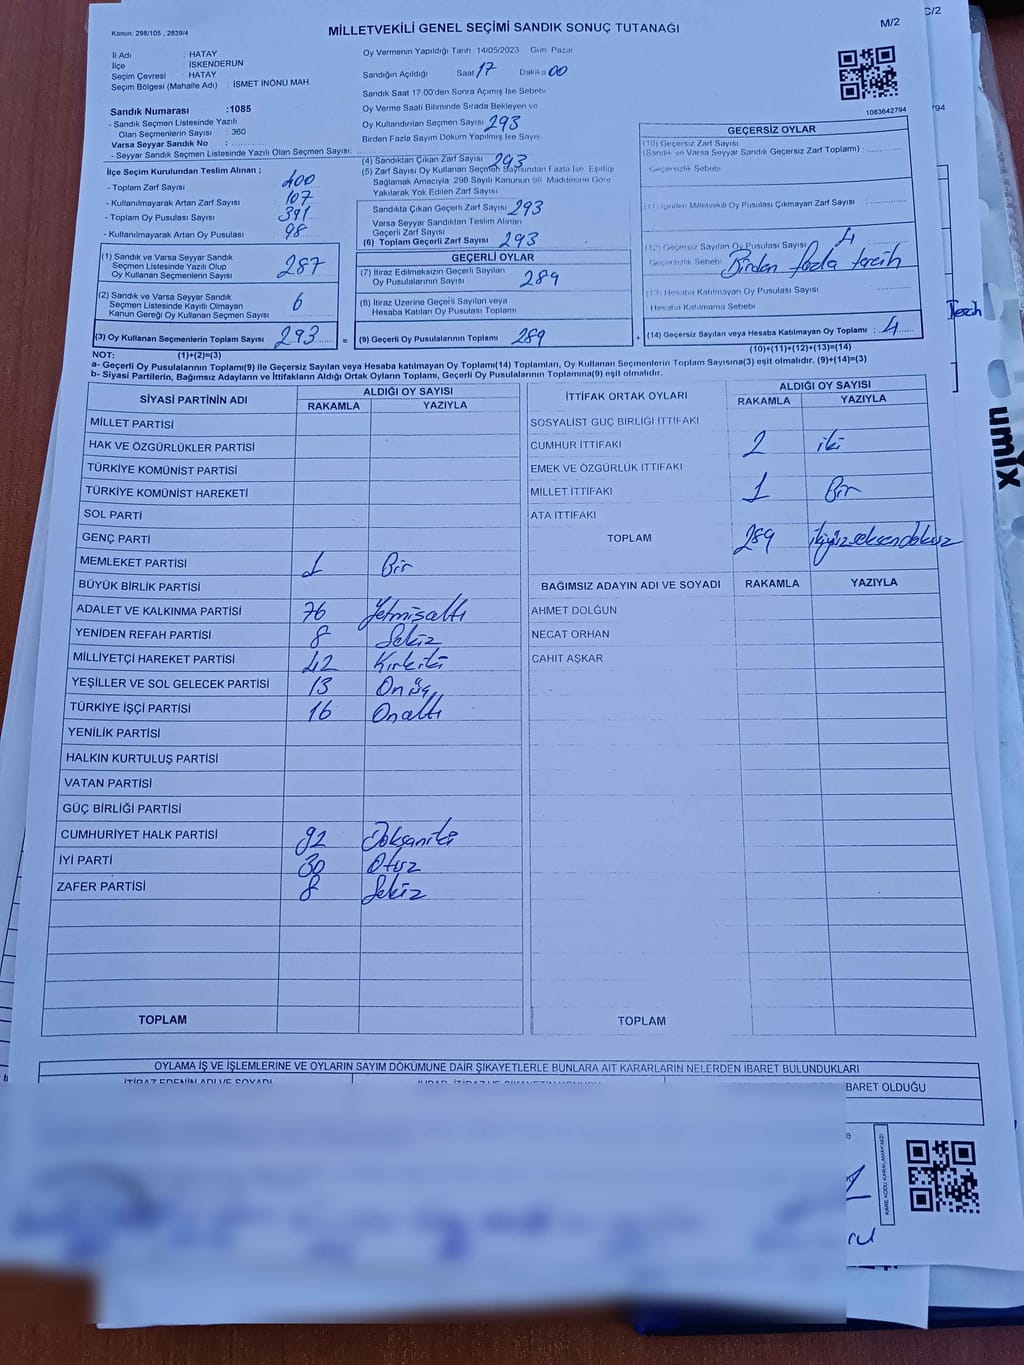 Kanun, 298/105 , 2839/4
MİLLETVEKİLİ GENEL SEÇİMİ SANDIK SONUÇ TUTANAĞI
M/2
C/2
İl Adı : HATAY
İlçe : İSKENDERUN
Seçim Çevresi : HATAY
Seçim Bölgesi (Mahalle Adı) : İSMET İNÖNÜ MAH.
Sandık Numarası :1085
- Sandık Seçmen Listesinde Yazılı
Olan Seçmenlerin Sayısı : 360
Varsa Seyyar Sandık No :
- Seyyar Sandık Seçmen Listesinde Yazılı Olan Seçmen Sayısı:
Oy Vermenin Yapıldığı Tarih 14/05/2023 Gün Pazar
Sandığın Açıldığı Saat 17 Dakika 00
Sandık Saat 17 00'den Sonra Açımış İse Sebebi
Oy Verme Saati Bitiminde Sırada Bekleyen ve
Oy Kullandırılan Seçmen Sayısı 293
Birden Fazla Sayım Döküm Yapılmış İse Sayısı
1083642794
794
İlçe Seçim Kurulundan Teslim Alınan ;
- Toplam Zarf Sayısı 400
- Kullanılmayarak Artan Zarf Sayısı 107
- Toplam Oy Pusulası Sayısı 391
- Kullanılmayarak Artan Oy Pusulası 98
(1) Sandık ve Varsa Seyyar Sandık
Seçmen Listesinde Yazılı Olup
Oy Kullanan Seçmenlerin Sayısı 287
(2) Sandık ve Varsa Seyyar Sandık
Seçmen Listesinde Kayıtlı Olmayan
Kanun Gereği Oy Kullanan Seçmen Sayısı 6
(3) Oy Kullanan Seçmenlerin Toplam Sayısı 293
(4) Sandıktan Çıkan Zarf Sayısı 293
(5) Zarf Sayısı Oy Kullanan Seçmen Sayısından Fazla İse, Eşitliği
Sağlamak Amacıyla 298 Sayılı Kanunun 98. Maddesine Göre
Yakılarak Yok Edilen Zarf Sayısı
Sandıkta Çıkan Geçerli Zarf Sayısı 293
Varsa Seyyar Sandıktan Teslim Alınan
Geçerli Zarf Sayısı
(6) Toplam Geçerli Zarf Sayısı 293
GEÇERLİ OYLAR
(7) İtiraz Edilmeksizin Geçerli Sayılan
Oy Pusulalarının Sayısı 289
(8) İtiraz Üzerine Geçerli Sayılan veya
Hesaba Katılan Oy Pusulası Toplamı
= (9) Geçerli Oy Pusulalarının Toplamı 289
GEÇERSİZ OYLAR
(10) Geçersiz Zarf Sayısı
(Sandık ve Varsa Seyyar Sandık Geçersiz Zarf Toplamı) :
Geçersizlik Sebebi
(11) İçinden Milletvekili Oy Pusulası Çıkmayan Zarf Sayısı
(12) Geçersiz Sayılan Oy Pusulası Sayısı 4
Geçersizlik Sebebi Birden fazla tercih
(13) Hesaba Katılmayan Oy Pusulası Sayısı
Hesaba Katılmama Sebebi
+ (14) Geçersiz Sayılan veya Hesaba Katılmayan Oy Toplamı : 4
NOT: (1)+(2)=(3)
(10)+(11)+(12)+(13)=(14)
a- Geçerli Oy Pusulalarının Toplamı(9) ile Geçersiz Sayılan veya Hesaba katılmayan Oy Toplamı(14) Toplamları, Oy Kullanan Seçmenlerin Toplam Sayısına(3) eşit olmalıdır. (9)+(14)=(3)
b- Siyasi Partilerin, Bağımsız Adayların ve İttifakların Aldığı Ortak Oyların Toplamı, Geçerli Oy Pusulalarının Toplamına(9) eşit olmalıdır.
SİYASİ PARTİNİN ADI ALDIĞI OY SAYISI
RAKAMLA YAZIYLA
MİLLET PARTİSİ
HAK VE ÖZGÜRLÜKLER PARTİSİ
TÜRKİYE KOMÜNİST PARTİSİ
TÜRKİYE KOMÜNİST HAREKETİ
SOL PARTİ
GENÇ PARTİ
MEMLEKET PARTİSİ 1 Bir
BÜYÜK BİRLİK PARTİSİ
ADALET VE KALKINMA PARTİSİ 76 Yetmişaltı
YENİDEN REFAH PARTİSİ 8 Sekiz
MİLLİYETÇİ HAREKET PARTİSİ 42 Kırkiki
YEŞİLLER VE SOL GELECEK PARTİSİ 13 Onüç
TÜRKİYE İŞÇİ PARTİSİ 16 Onaltı
YENİLİK PARTİSİ
HALKIN KURTULUŞ PARTİSİ
VATAN PARTİSİ
GÜÇ BİRLİĞİ PARTİSİ
CUMHURİYET HALK PARTİSİ 92 Doksaniki
İYİ PARTİ 30 Otuz
ZAFER PARTİSİ 8 Sekiz
TOPLAM
İTTİFAK ORTAK OYLARI ALDIĞI OY SAYISI
RAKAMLA YAZIYLA
SOSYALİST GÜÇ BİRLİĞİ İTTİFAKI
CUMHUR İTTİFAKI 2 iki
EMEK VE ÖZGÜRLÜK İTTİFAKI
MİLLET İTTİFAKI 1 Bir
ATA İTTİFAKI
TOPLAM 289 ikiyüzseksendokuz
BAĞIMSIZ ADAYIN ADI VE SOYADI RAKAMLA YAZIYLA
AHMET DOLĞUN
NECAT ORHAN
CAHİT AŞKAR
TOPLAM
OYLAMA İŞ VE İŞLEMLERİNE VE OYLARIN SAYIM DÖKÜMÜNE DAİR ŞİKAYETLERLE BUNLARA AİT KARARLARIN NELERDEN İBARET BULUNDUKLARI
İTİRAZ EDENİN ADI VE SOYADI
İBARET OLDUĞU
KARE KODU KARALAMAYINIZ!
umix